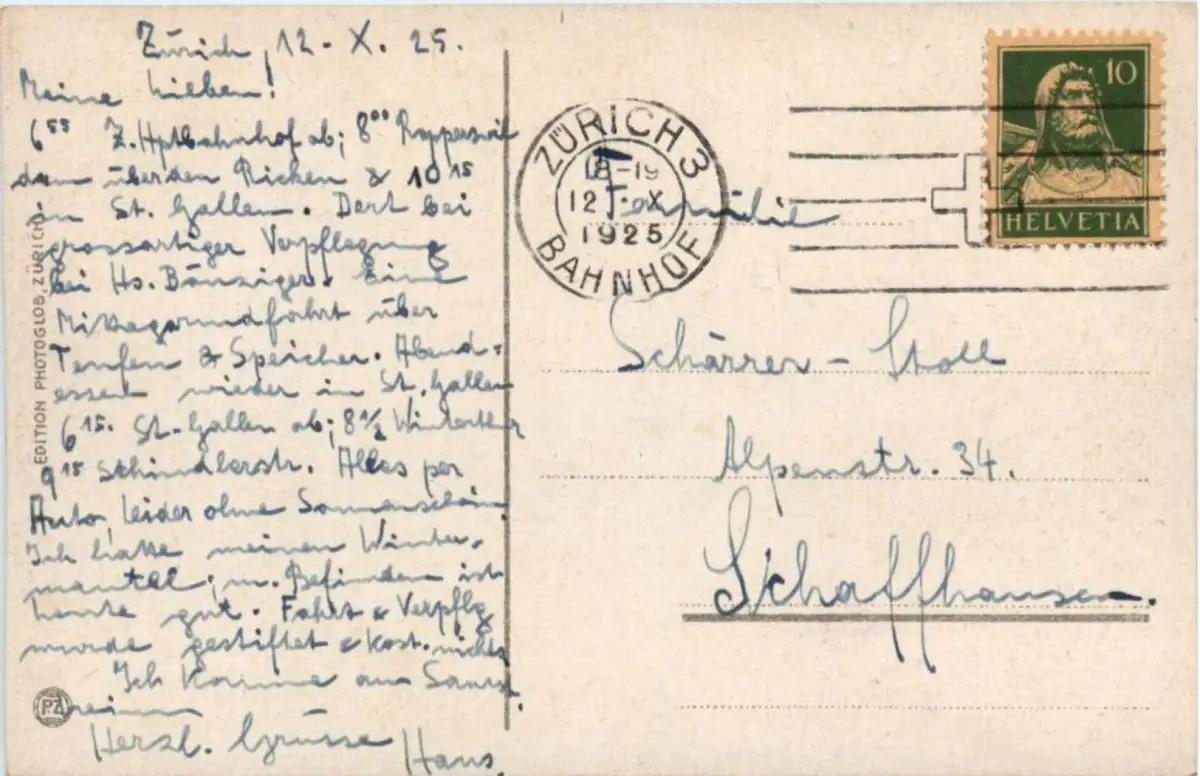 Zürich, 12. X. 25.
Meine Lieben!
6⁵⁵ Z. Hptbahnhof ab; 8⁰⁰ Rapperswil
dann über den Ricken & 10¹⁵
in St. Gallen. Dort bei
grossartiger Verpflegung
bei Hs. Bänziger. Eine
Mittagsrundfahrt über
Teufen & Speicher. Abend-
essen wieder in St. Gallen
6¹⁵ St. Gallen ab; 8½ Winterthur
9¹⁵ Schindlerstr. Alles per
Auto, leider ohne Sonnenschein.
Ich hatte meinen Winter-
mantel; m. Befinden ist
heute gut. Fahrt & Verpflg
wurde gestiftet & kost. nichts
Ich komme am Samst.
heim
Herzl. Grüsse Hans.
EDITION PHOTOGLOB, ZÜRICH
PZ
ZÜRICH 3
18-19
12. X
1925
BAHNHOF
10
HELVETIA
Familie
Schärrer-Stoll
Alpenstr. 34.
Schaffhausen.